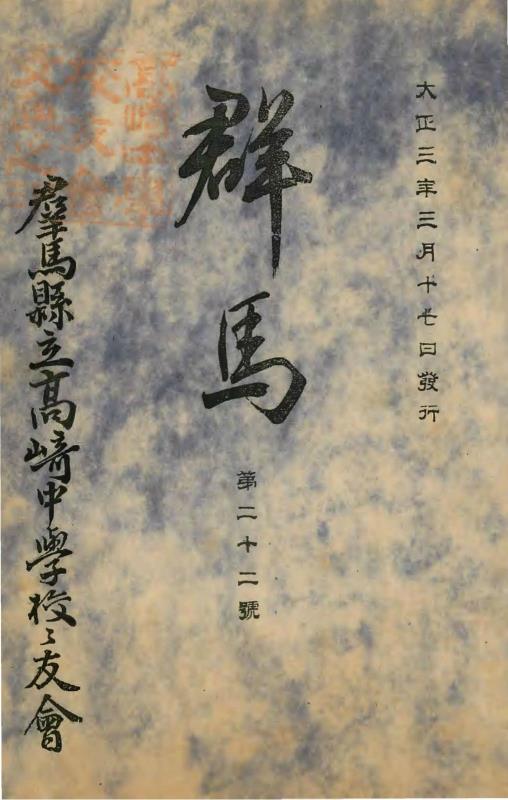 大正三年三月十七日發行
群馬
第二十二號
羣馬縣立高崎中學校々友會